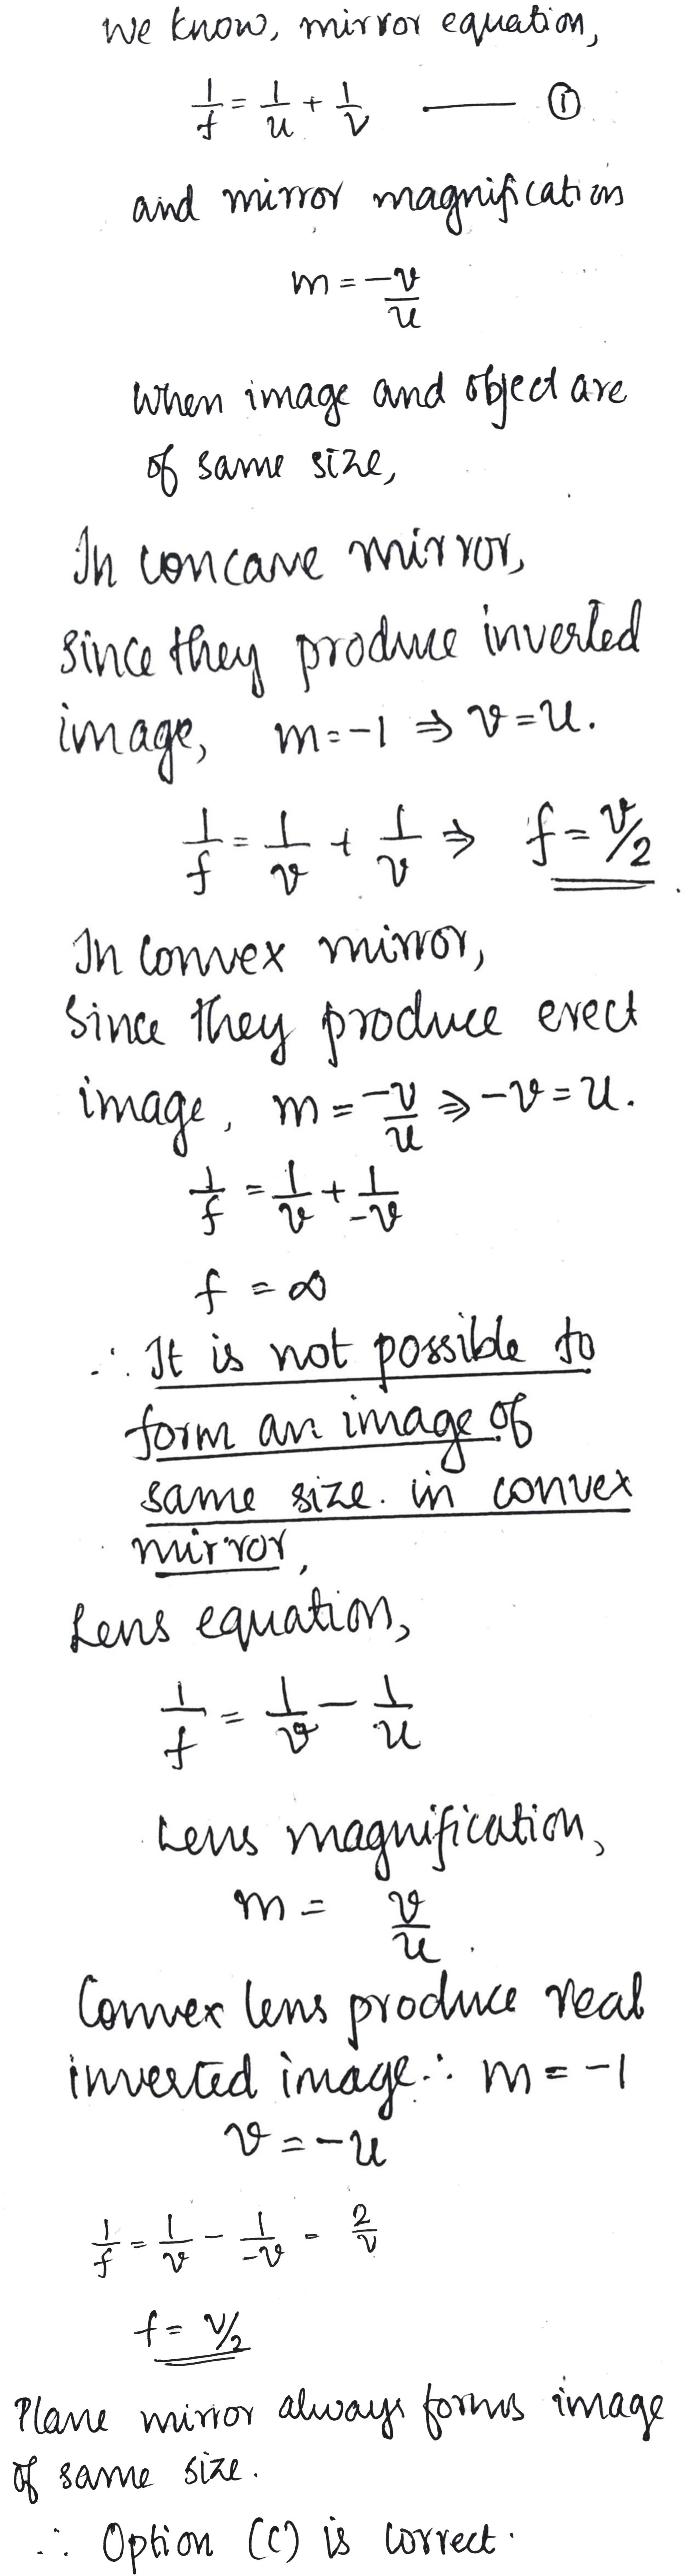 We know, mirror equation,
1/f = 1/u + 1/v —— ①
and mirror magnification
m = -v/u
When image and object are
of same size,
In concave mirror,
since they produce inverted
image, m = -1 ⇒ v = u.
1/f = 1/v + 1/v ⇒ f = v/2
In convex mirror,
Since they produce erect
image, m = -v/u ⇒ -v = u.
1/f = 1/v + 1/-v
f = ∞
∴ It is not possible to
form an image of
same size. in convex
mirror,
Lens equation,
1/f = 1/v - 1/u
Lens magnification,
m = v/u.
Convex lens produce real
inverted image ∴ m = -1
v = -u
1/f = 1/v - 1/-v = 2/v
f = v/2
Plane mirror always forms image
of same size.
∴ Option (C) is correct.